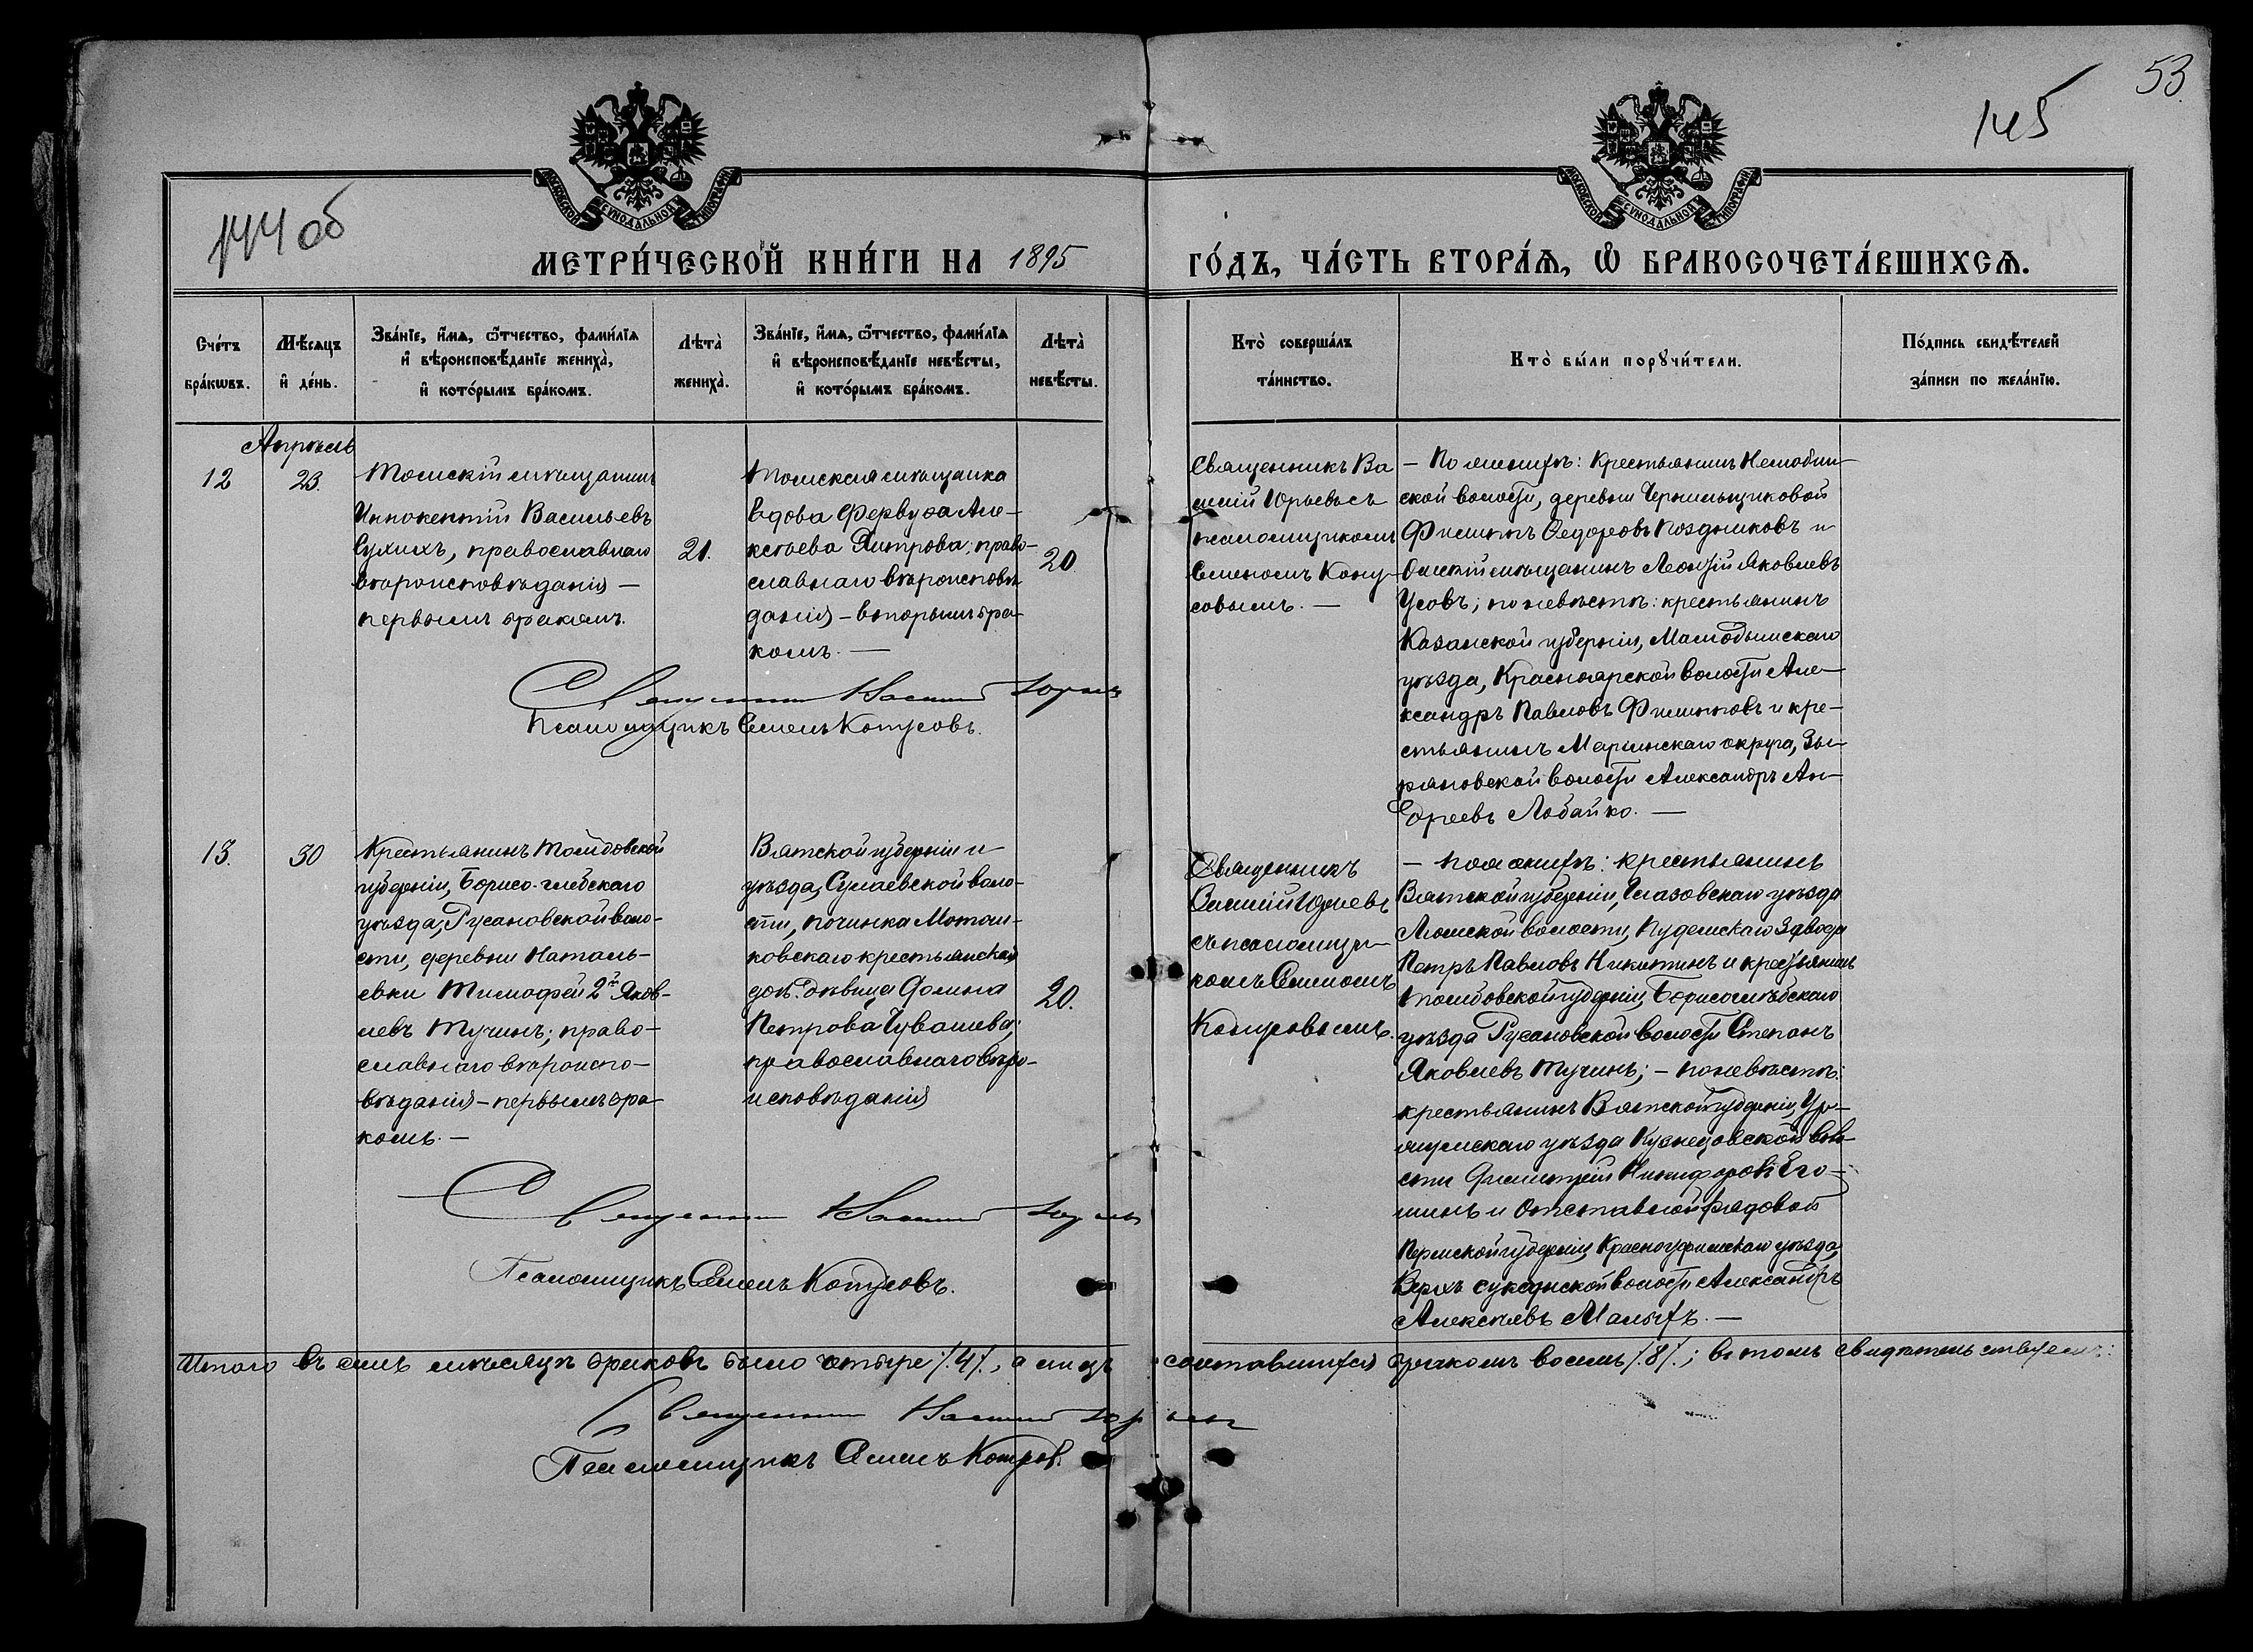 53
145
144 об
МОСКОВСКОЙ СѴНОДАЛЬНОЙ ТИПОГРАФІИ
МОСКОВСКОЙ СѴНОДАЛЬНОЙ ТИПОГРАФІИ
МЕТРИ́ЧЕСКОЙ КНИ́ГИ НА 1895
ГО́ДЪ, ЧА́СТЬ ВТОРА́Ѧ, Ѡ БРАКОСОЧЕТА́ВШИХСѦ.
Сче́тъ
бра́кѡвъ.
Мѣ́сѧцъ
и҆ де́нь.
Зва́нїе, и҆́мѧ, ѻ҆́тчество, фами́лїѧ
и҆ вѣроисповѣ́данїе жениха̀,
и҆ кото́рымъ бра́комъ.
Лѣта̀
жениха̀.
Зва́нїе, и҆́мѧ, ѻ҆́тчество, фами́лїѧ
и҆ вѣроисповѣ́данїе невѣ́сты,
и҆ кото́рымъ бра́комъ.
Лѣта̀
невѣ́сты.
Кто̀ соверша́лъ
та́инство.
Кто̀ бы́ли порꙋчи́тели.
По́дпись свидѣ́телей
за́писи по жела́нїю.
Апрѣль
12
23.
Томскій мѣщанинъ
Иннокентій Васильевъ
Сухихъ, православнаго
вѣроисповѣданія —
первымъ бракомъ.
21.
Томская мѣщанка
вдова Фервуза Але-
ксѣева Хитрова; право-
славнаго вѣроисповѣ-
данія – вторымъ бра-
комъ. —
20
Священникъ Ва
силій Юрьевъ съ
псаломщикомъ
Семеномъ Коту-
совымъ. —
— По женихѣ: крестьянинъ Нелюбин-
ской волости, деревни Чернильщиковой
Филиппъ Ѳедоровъ Поздняковъ и
Омскій мѣщанинъ Леонтій Яковлевъ
Усовъ; по невѣстѣ: крестьянинъ
Казанской губерніи, Мамадышскаго
уѣзда, Красноярской волости Але-
ксандръ Павловъ Филипповъ и кре-
стьянинъ Маріинскаго округа, Зы-
ряновской волости Александръ Ан-
дреевъ Лобайко. —
Священникъ Василій Юрьевъ
Псаломщикъ Семенъ Котусовъ.
13.
30
Крестьянинъ Тамбовской
губерніи, Борисо-глебскаго
уѣзда, Русановской воло-
сти, деревни Наталь-
евки Тимофей 2й Яков-
левъ Тучинъ; право-
славнаго вѣроиспо-
вѣданія – первымъ бра-
комъ. —
Вятской губерніи и
уѣзда, Сунаевской воло-
сти, починка Моташ-
ковскаго крестьянская
дочь дѣвица Фомина
Петрова Чувашева;
православнаго вѣро-
исповѣданія
20.
Священникъ
Василій Юрьевъ
съ псаломщи-
комъ Семеномъ
Котусовымъ.
— по женихѣ: крестьянинъ
Вятской губерніи, Глазовскаго уѣзда
Люмской волости, Пудемскаго Завода
Петръ Павловъ Никитинъ и крестьянинъ
Тамбовской губерніи, Борисоглѣбскаго
уѣзда Русановской волости Степанъ
Яковлевъ Тучинъ; – по невѣстѣ:
крестьянинъ Вятской губерніи, Ур-
жумскаго уѣзда Кузнецовской воло-
сти Дмитрій Никифоровъ Его-
шинъ и отставной рядовой
Пермской губерніи, Красноуфимскаго уѣзда,
Верхъ суксунской волости Александръ
Алексѣевъ Малыхъ. —
Священникъ Василій Юрьевъ
Псаломщикъ Семенъ Котусовъ.
Итого въ семъ мѣсяцѣ браковъ было четыре /.4/., а лицъ сочетавшихся бракомъ восемь /.8/.; въ томъ свидѣтельствуемъ:
Священникъ Василій Юрьевъ
Псаломщикъ Семенъ Котусов.